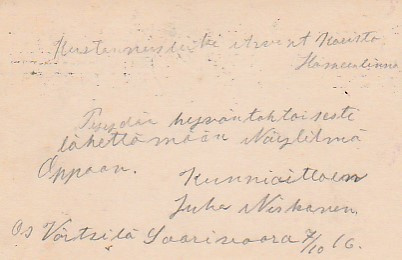 Kustannusliike Arvi A. Karisto
Hämeenlinna
Pyydän hyväntahtoisesti
lähettämään Näyttelmä
Oppaan.
Kunnioittaen
Juho Niskanen.
Os Värtsilä Saarivaara 7/10 16.